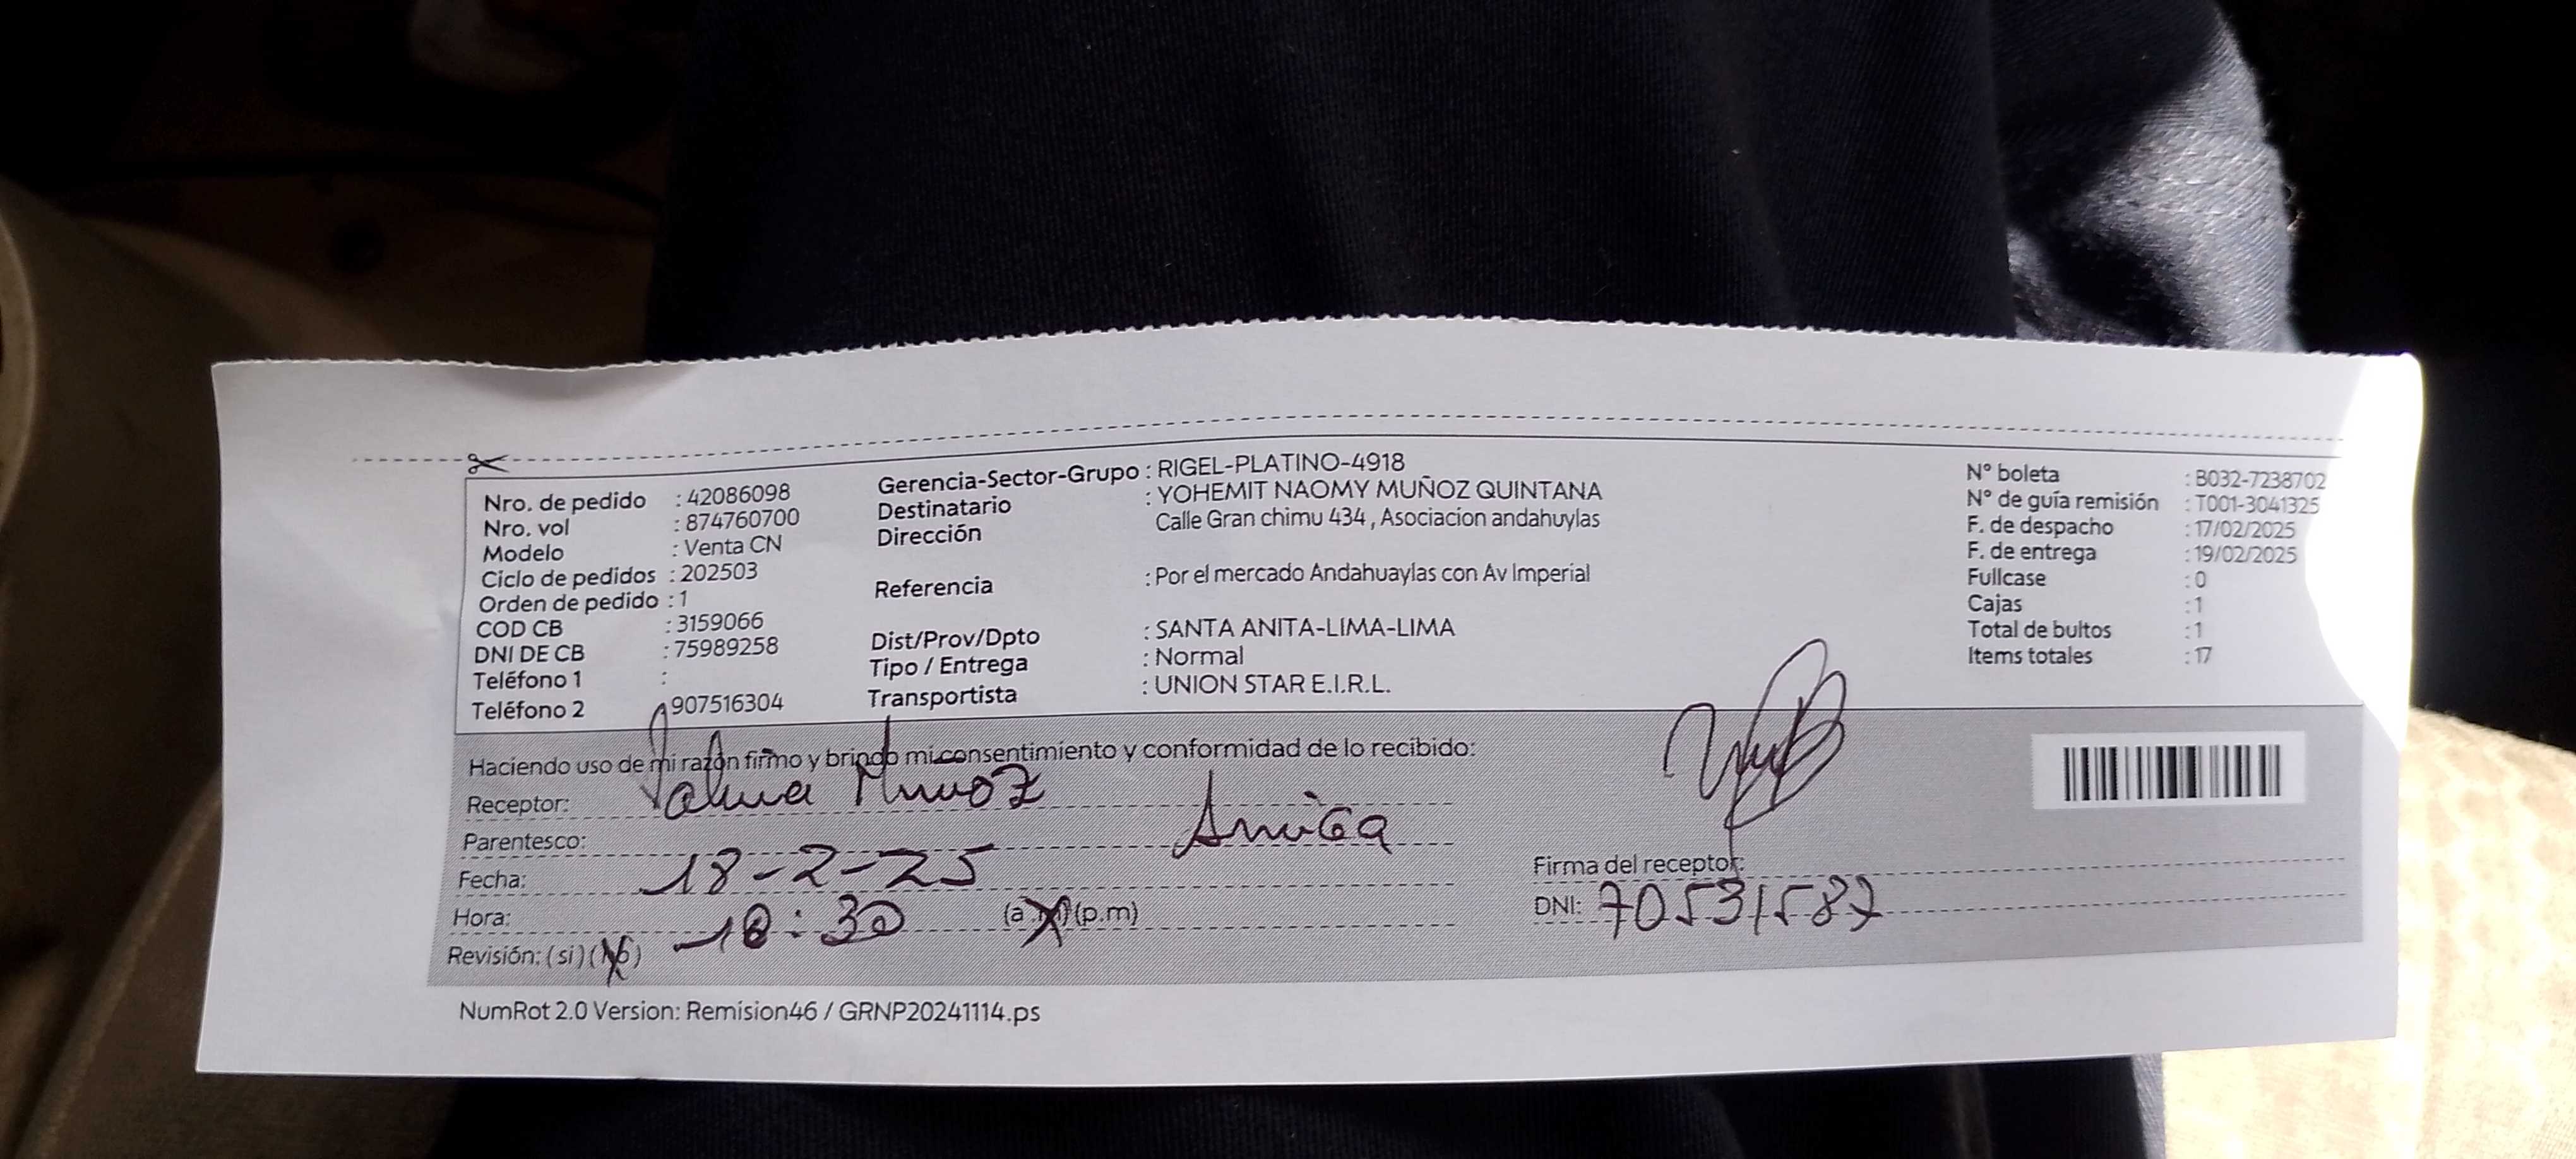 Nro. de pedido : 42086098
Nro. vol : 874760700
Modelo : Venta CN
Ciclo de pedidos : 202503
Orden de pedido : 1
COD CB : 3159066
DNI DE CB : 75989258
Teléfono 1 :
Teléfono 2 907516304
Gerencia-Sector-Grupo : RIGEL-PLATINO-4918
Destinatario : YOHEMIT NAOMY MUÑOZ QUINTANA
Dirección Calle Gran chimu 434 , Asociacion andahuylas
Referencia : Por el mercado Andahuaylas con Av Imperial
Dist/Prov/Dpto : SANTA ANITA-LIMA-LIMA
Tipo / Entrega : Normal
Transportista : UNION STAR E.I.R.L.
N° boleta : B032-7238702
N° de guía remisión : T001-3041325
F. de despacho : 17/02/2025
F. de entrega : 19/02/2025
Fullcase : 0
Cajas : 1
Total de bultos : 1
Items totales : 17
Haciendo uso de mi razón firmo y brindo mi consentimiento y conformidad de lo recibido:
Receptor: Muñoz
Parentesco: Amiga
Fecha: 18-2-25
Hora: 10:30 (a.m)(p.m)
Revisión: (si) (no)
Firma del receptor:
DNI: 70531587
NumRot 2.0 Version: Remision46 / GRNP20241114.ps